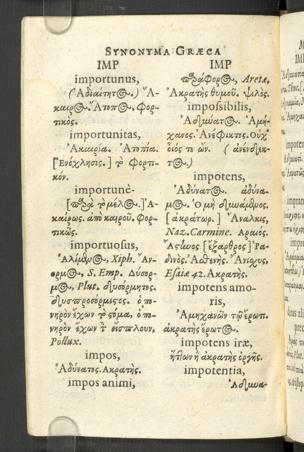 SYNONYMA GRÆCA
IMP
importunus,
(Ἀδιαίτητος.) Ἄ-
καιρος. Ἄτοπος. Φορ-
τικός.
importunitas,
Ἀκαιρία. Ἀτοπία.
[Ἐνόχλησις.] τὸ Φορτι-
κόν.
importunè-
[παρὰ μέλος.] Ἀ-
καίρως. ἀπὸ καιροῦ. Φορ-
τικῶς.
importuosus,
Ἀλίμενος, Xiph. Ἄν-
ορμος, S. Emp. Δύσορ-
μος, Plut. δυσόρμητος.
δυσπροσόρμιστος. ὁ πο-
νηρὸν ἔχων
νηρὸν ἔχων εἴσπλουν,
Pollux.
impos,
Ἀδύνατος. Ἀκρατής.
impos animi,
IMP
παράφορος, Aretæ.
Ἀκρατὴς θυμοῦ. ψιλός.
impossibilis,
Ἀδύνατος. Ἀμή-
χανος. Ἀνέφικτος. οὐχ
οἷός τε ὤν. (ἀνένδεικ-
τος.)
impotens,
Ἀδύνατος. ἀδύνα-
μος. Ὁ μὴ δυνάμενος.
[ἀκράτωρ.] Ἄναλκις,
Naz. Carmine. Ἀραιός.
[ἔξαρθρος] Ῥα-
δινός. Ἀσθενής. Ἄνισχυς,
Esaiæ 42. Ἀκρατής.
impotens amo-
ris,
Ἀμηχανῶν τῷ ἔρωτι.
ἀκρατὴς ἔρωτος.
impotens iræ,
ἥττων ἢ ἀκρατὴς ὀργῆς.
impotentia,
Ἀδυνα-